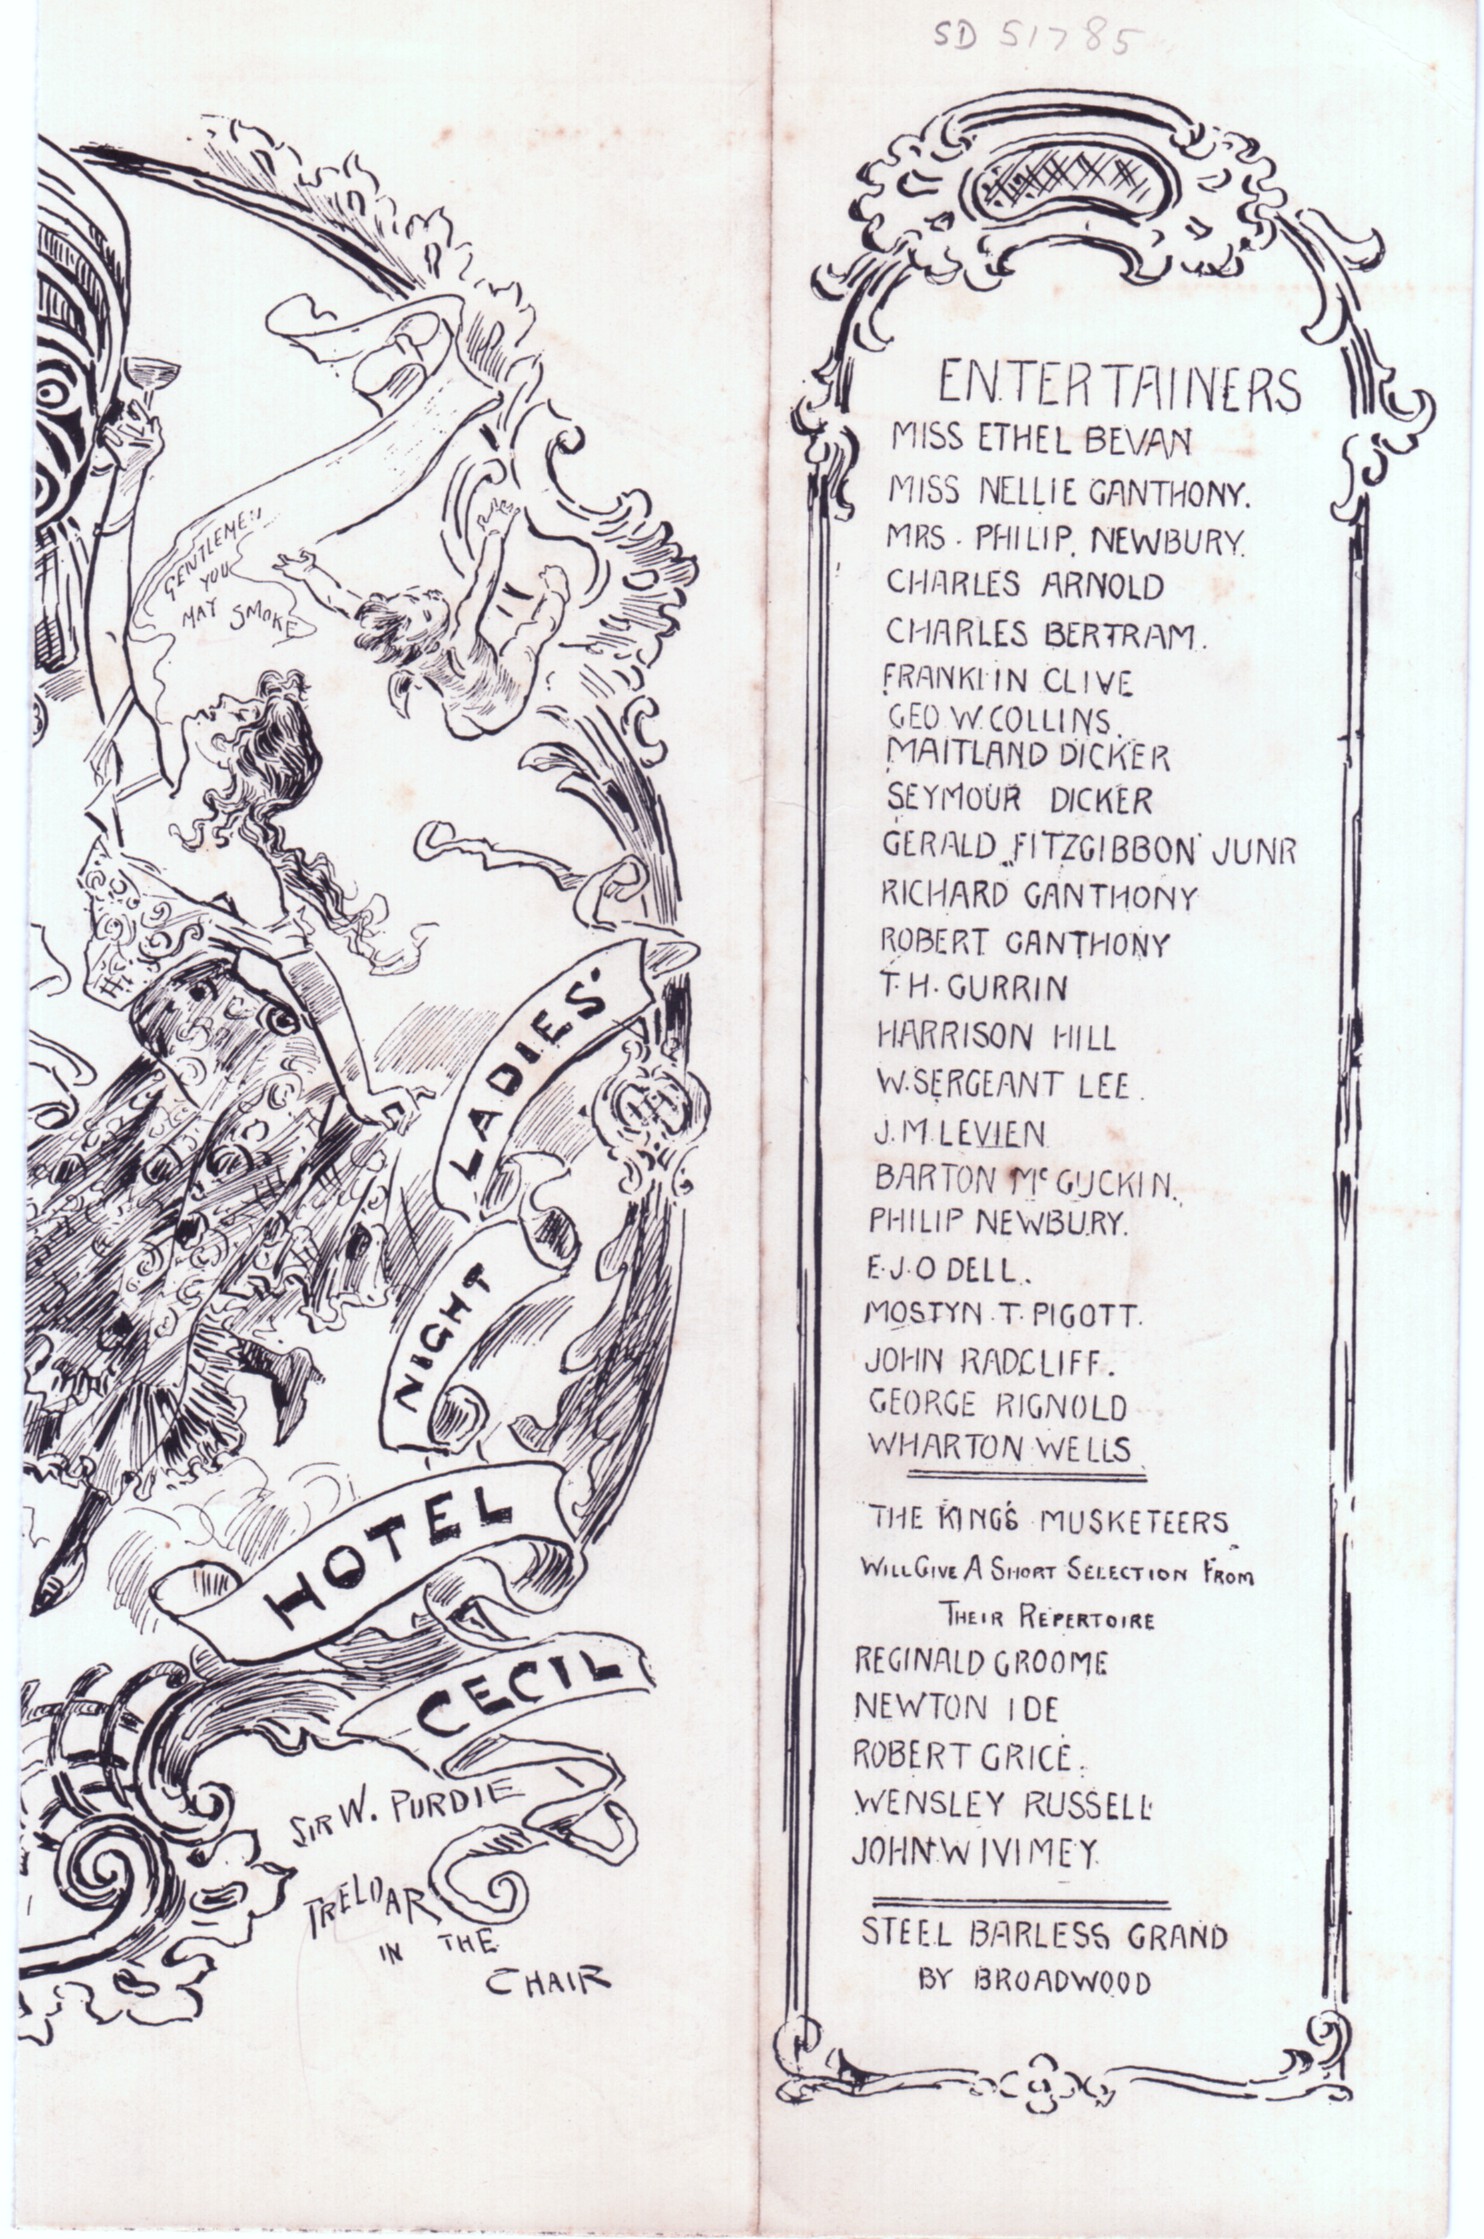 SD 51785
GENTLEMEN
YOU
MAY SMOKE
LADIES'
NIGHT
HOTEL
CECIL
SIR W. PURDIE
TRELOAR
IN THE
CHAIR
ENTERTAINERS
MISS ETHEL BEVAN
MISS NELLIE GANTHONY.
MRS. PHILIP. NEWBURY.
CHARLES ARNOLD
CHARLES BERTRAM.
FRANKLIN CLIVE
GEO W. COLLINS.
MAITLAND DICKER
SEYMOUR DICKER
GERALD FITZGIBBON JUNR
RICHARD GANTHONY
ROBERT GANTHONY
T. H. GURRIN
HARRISON HILL
W. SERGEANT LEE.
J. M. LEVIEN
BARTON Mc GUCKIN.
PHILIP NEWBURY.
E. J. O DELL.
MOSTYN. T. PIGOTT.
JOHN RADCLIFF.
GEORGE RIGNOLD
WHARTON WELLS.
THE KING'S MUSKETEERS
WILL GIVE A SHORT SELECTION FROM
THEIR REPERTOIRE
REGINALD GROOME
NEWTON IDE
ROBERT GRICE.
WENSLEY RUSSELL
JOHN W IVIMEY.
STEEL BARLESS GRAND
BY BROADWOOD